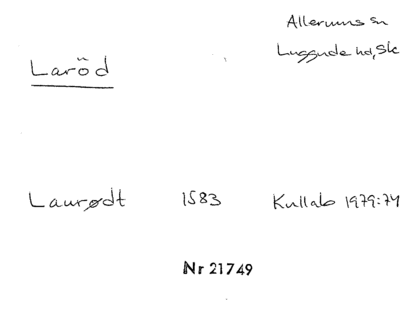 Allerums sn
Luggude hd, Sk
Laröd
Laurødt 1583 Kullab 1979:74
Nr 21749